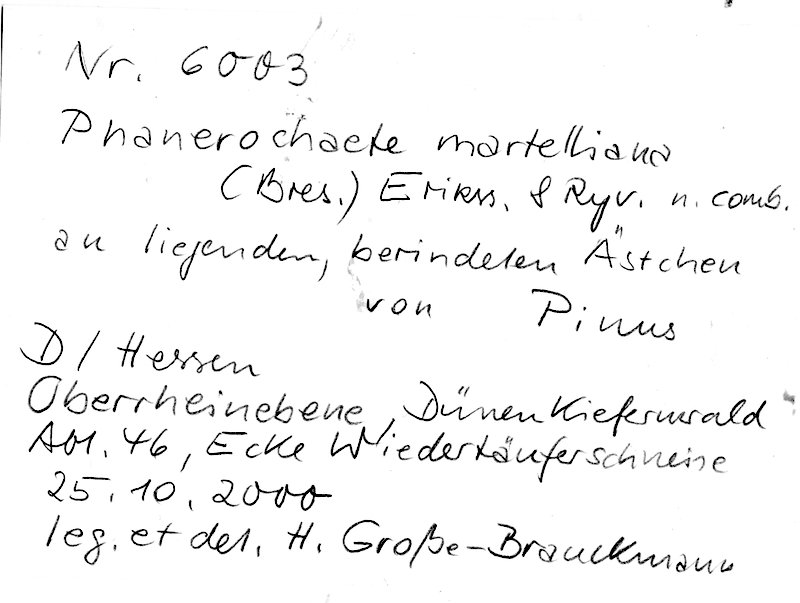 Nr. 6003
Phanerochaete martelliana
(Bres.) Erikss. & Ryv. n. comb.
an liegenden, berindeten Ästchen
von Pinus
D / Hessen
Oberrheinebene, Dünenkiefernwald
Abt. 46, Ecke Wiedertäuferschneise
25.10.2000
leg. et det. H. Große-Brauckmann